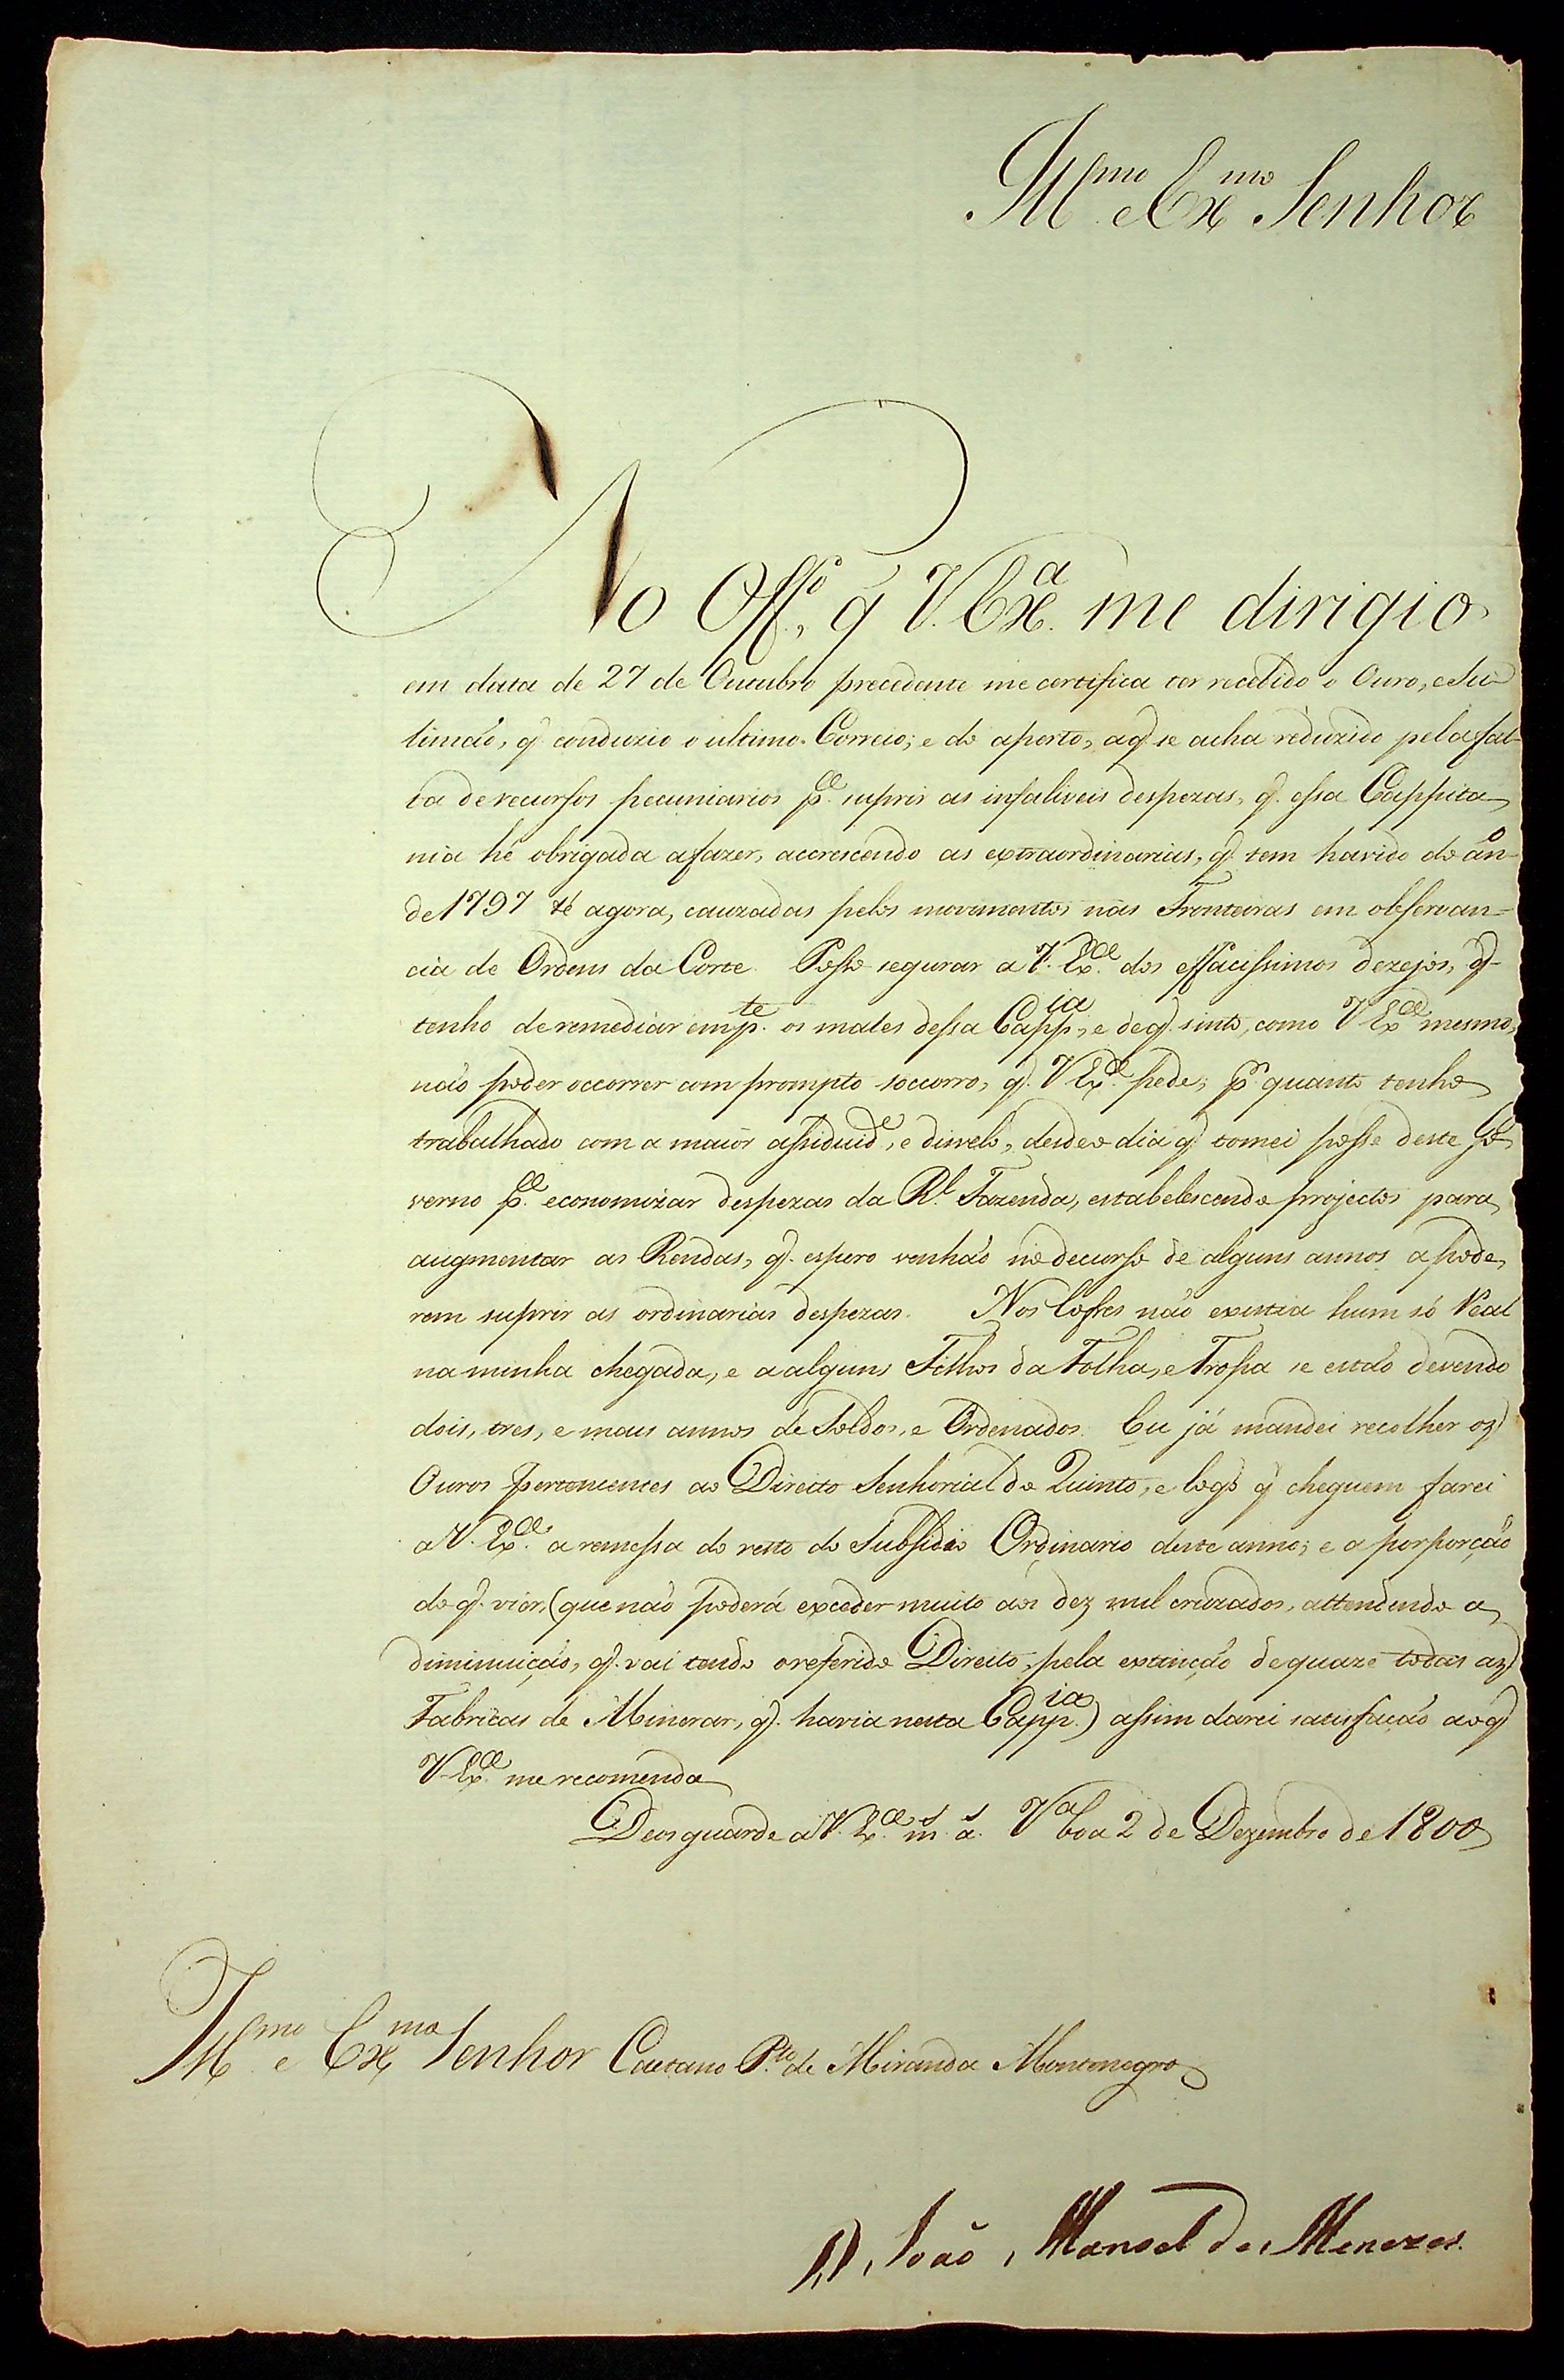 Ill.mo e Ex.mo Senhor
No Off.o, q̃ V. Ex.a me dirigio
em data de 27 de Outubro precedente me certifica ter recebido o Ouro, e Su-
limão, q̃ conduzio o ultimo Correio; e do aperto, a q̃ se acha reduzido pela fal-
ta de recursos pecuniarios p.a suprir as infaliveis despezas, q̃ essa Cappita
nia hé obrigada a fazer, accrescendo as extraordinarias, q̃ tem havido do ãn.o
de 1797 té agora, cauzadas pelos movimentos nas Fronteiras em observan-
cia de Ordens da Corte. Posso segurar a V. Ex.a dos efficacissimos dezejos, q̃
tenho de remediar em p.te os males dessa Capp.ia, e de q̃ sinto, como V Ex.a mesmo,
não poder occorrer com prompto soccorro, q̃ V Ex.a pede; p.r quanto tenho
trabalhado com a maior assiduid.e, e disvelo, desde o dia q̃ tomei posse deste Go
verno p.a economizar despezas da R.l Fazenda, estabelescendo projectos para
augmentar as Rendas, q̃ espero venhão no decurso de alguns annos a pode
rem suprir as ordinarias despezas. Nos Cofres não existia hum só Real
na minha chegada, e a alguns Filhos da Folha, e Tropa se estão devendo
dois, tres, e mais annos de Soldos, e Ordenados. Eu já mandei recolher os
Ouros pertencentes ao Direito Senhorial do Quinto, e logo q̃ cheguem farei
a V. Ex.a a remessa do resto do Subsidio Ordinario deste anno; e a porporção
do q̃ vier, (que não poderá exceder muito aos dez mil cruzados, attendendo a
diminuição, q̃ vai tendo o referido Direito, pela extinção de quaze todas as
Fabricas de Minerar, q̃ havia nesta Capp.ia) assim darei satisfação ao q̃
V. Ex.a me recomenda
Deos guarde a V. Ex.a m.s a.s V.a boa 2 de Dezembro de 1800
Ill.mo e Ex.mo Senhor Caetano P.to de Miranda Montenegro
D. João Manoel de Menezes.